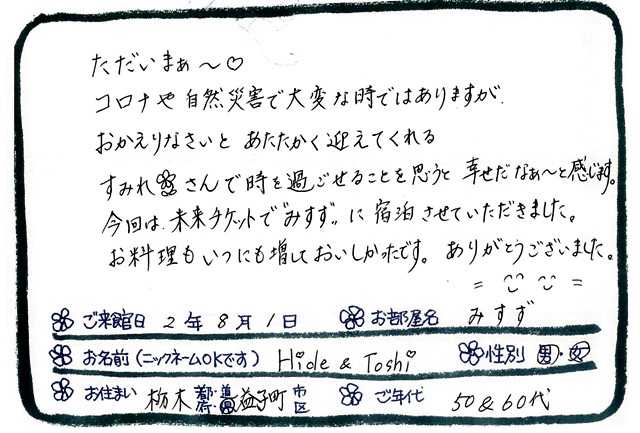 ただいまぁ～♡
コロナや自然災害で大変な時ではありますが、
おかえりなさいと あたたかく迎えてくれる
すみれさんで時を過ごせることを思うと 幸せだなぁ～と感じます。
今回は、未来チケットで"みすず"に宿泊させていただきました。
お料理もいつにも増しておいしかったです。ありがとうございました。
ご来館日 2年8月1日 お部屋名 みすず
お名前(ニックネームOKです) Hide & Toshi 性別 男・女
お住まい 栃木 都・道・府・県 益子町 市区 ご年代 50&60代